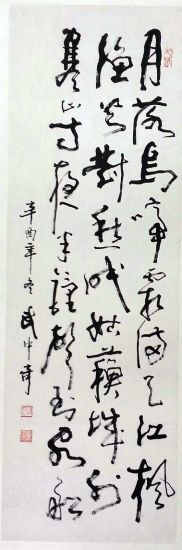 月落烏啼霜滿天江楓
漁火對愁眠姑蘇城外
寒山寺夜半鐘聲到客船
辛酉年冬武中奇